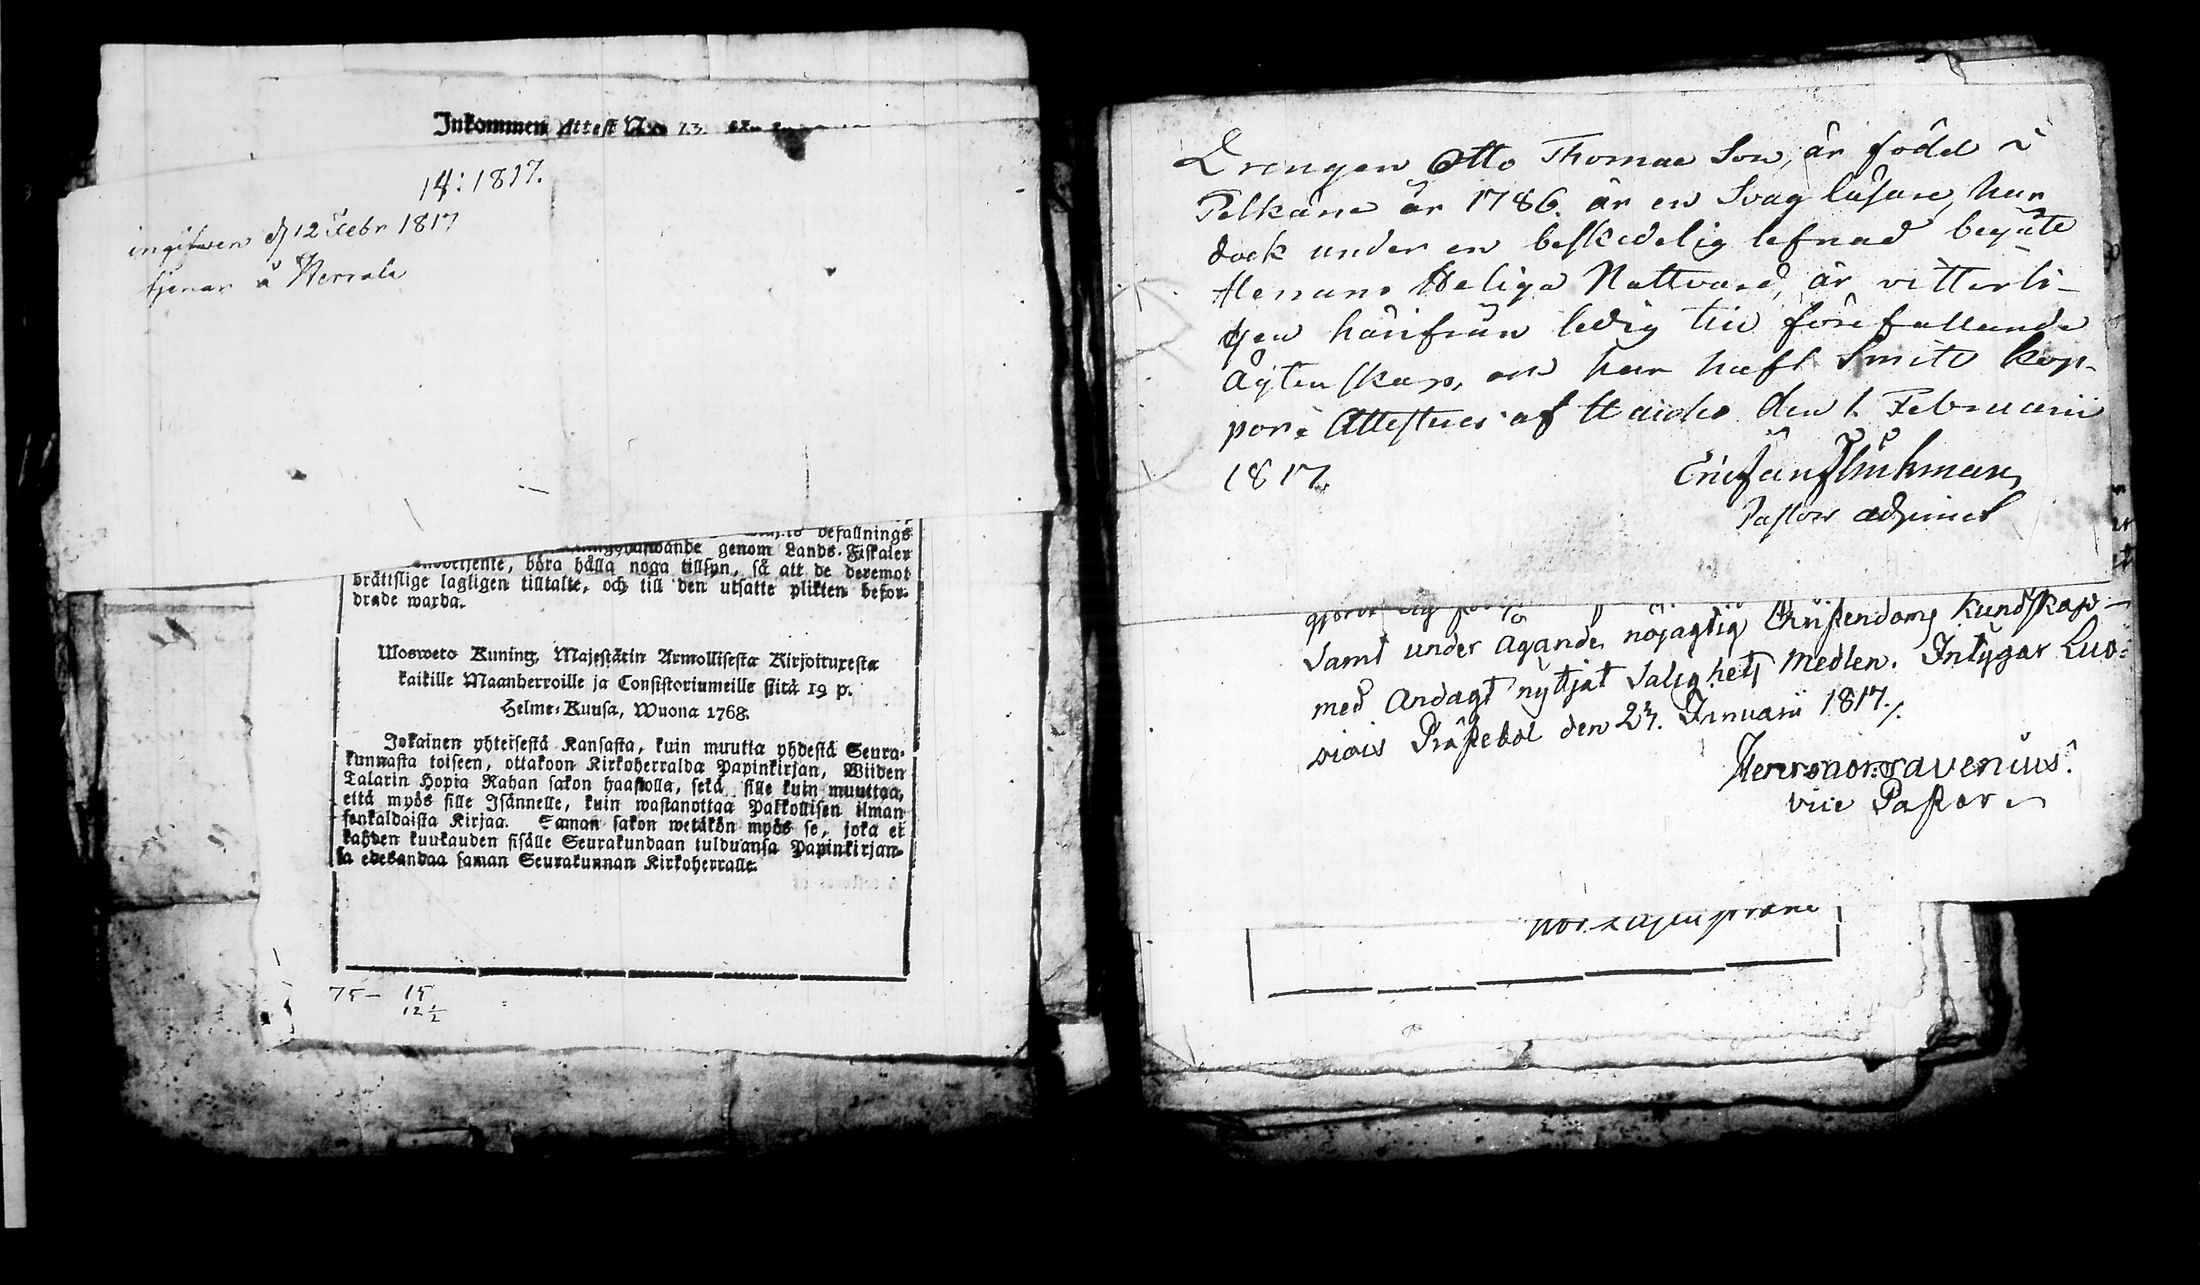 Inkommen Attest No 13.
14: 1817.
ingifwen d 12 Febr 1817
tjenar å Herrala
befallnings
genom Lands-Fiskaler
böra hålla noga tillsyn, så att de deremot
bråttslige lagligen tilltalte, och till den utsatte plikten befor-
drade warda.
Wosweto Kuning. Majestätin Armollisesta Kirjoituxesta
kaikille Maanherroille ja Consistoriumeille siitä 19 p.
Helme-Kuusa, Wuona 1768.
Jokainen yhteisestä Kansasta, kuin muutta yhdestä Seura-
kunnasta toiseen, ottakoon Kirkoherralda Papinkirjan, Wiiden
Talarin Hopia Rahan sakon haastolla, sekä sille kuin muuttaa,
että myös sille Isännelle, kuin wastanottaa Palkollisen ilman
senkaldaista Kirjaa. Saman sakon wetäkön myös se, joka ei
kahden kuukauden sisälle Seurakundaan tulduansa Papinkirjan-
sa edesandaa saman Seurakunnan Kirkoherralle.
75- 15
12 1/2
Drengen Otto Thomae Son, är född i
Pelkäne år 1786. är en Svag läsare, har
dock under en beskedelig lefnad begått
Herrans Heliga Nattvard, är vitterli-
gen härifrån ledig till förefallande
Ägtenskap, och har haft Smitt kop-
por: Attesteres af Hauho den 1. Februarii
1817.
Pastors adjunct
Samt under ägande nöjagtig Christendoms Kundskap
med Andagt nyttjat Salighets Medlen. Intygar Luo-
piois Prästebol den 27. Januarii 1817./.
vice Pastor